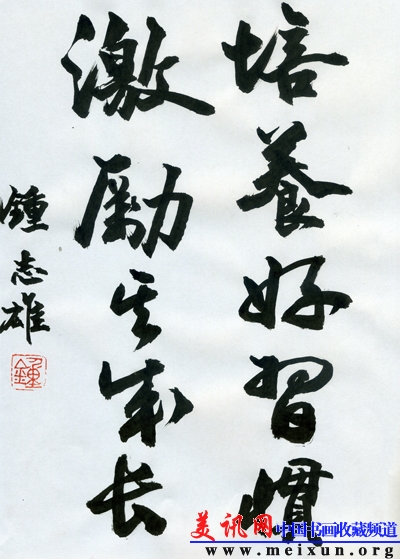 培養好習慣
激勵其成长
鍾志雄
鍾
美讯网 中国书画收藏频道
www.meixun.org